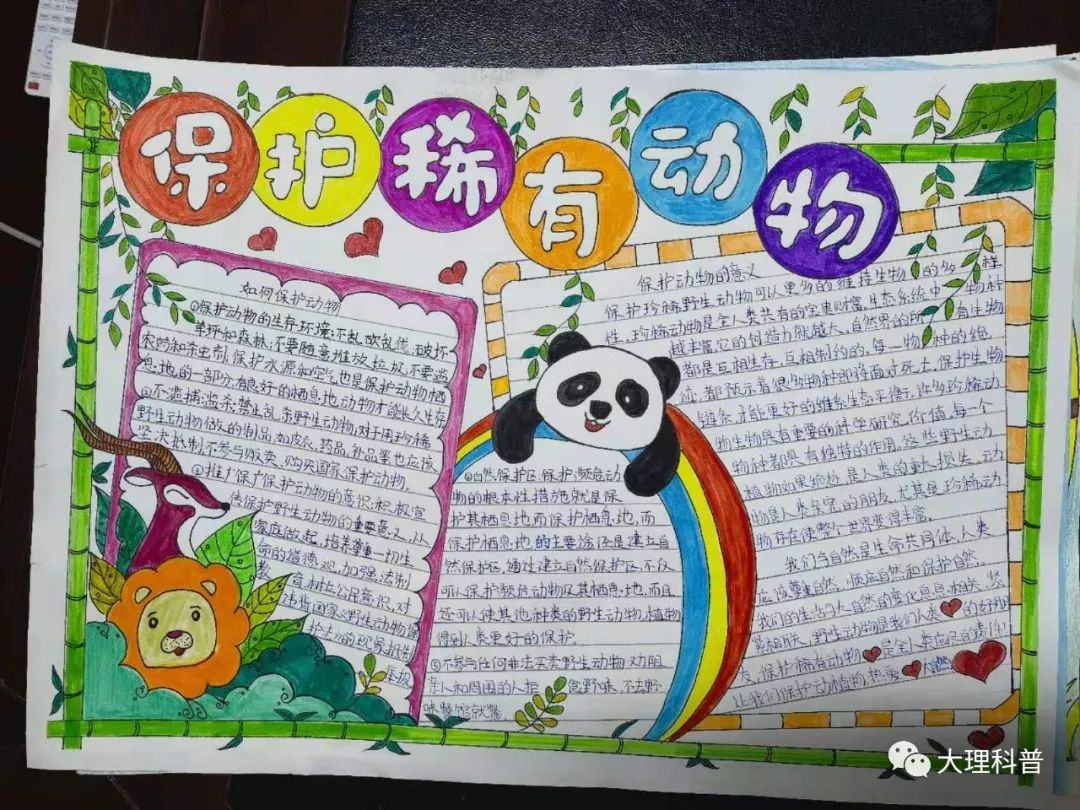 保护稀有动物
如何保护动物
①保护动物的生存环境:不乱砍乱伐,破坏
草坪和森林,不要随意堆放垃圾,不要滥
农药和杀虫剂,保护水源和空气也是保护动物栖
息地的一部分,有良好的栖息地,动物才能长久生存
②不滥捕滥杀:禁止乱杀野生动物,对于用珍稀
野生动物做的制品,如皮衣、药品、补品等也应该
坚决抵制,不参与贩卖、购买国家保护动物
③推广保护动物的意识:积极宣
传保护野生动物的重要意义,从
家庭做起,培养尊重一切生
命的道德观,加强法制
教育,树立公民意识,对
违背国家《野生动物保
护法》的现象抵制
④自然保护区:保护濒危动
物的根本性措施就是保
护其栖息地,而保护栖息地,而
保护栖息地的主要途径是建立自
然保护区,通过建立自然保护区,不仅
可以保护濒危动物及其栖息地,而且
还可以使其他种类的野生动物植物
得到人类更好的保护
⑤不参与任何非法买卖野生动物,劝阻
亲人和周围的人拒 食野味,不去野
味餐馆就餐。
保护动物的意义
保护珍稀野生动物可以更多的维持生物的多样
性,珍稀动物是全人类共有的宝贵财富,生态系统中物种
越丰富,它的创造力就越大,自然界的所有生物
都是互相生存、互相制约的,每一物种的绝
迹,都预示着很多物种即将面对死亡,保护生物
链条,才能更好的维系生态平衡,许多珍稀动
物生物具有重要的科学研究价值,每一个
物种都具有独特的作用,这些野生动
植物如果绝迹,是人类的重大损失,动
物是人类亲密的朋友,尤其是珍稀动
物存在使整个世界变得丰富。
我们与自然是生命共同体,人类
应该尊重自然、顺应自然和保护自然,
我们的生活与大自然的变化息息相关、紧
紧相联、野生动物是我们人类的好朋
友,保护稀有动物 是全人类应尽的责任
让我们保护动植物,热爱大自然
大理科普